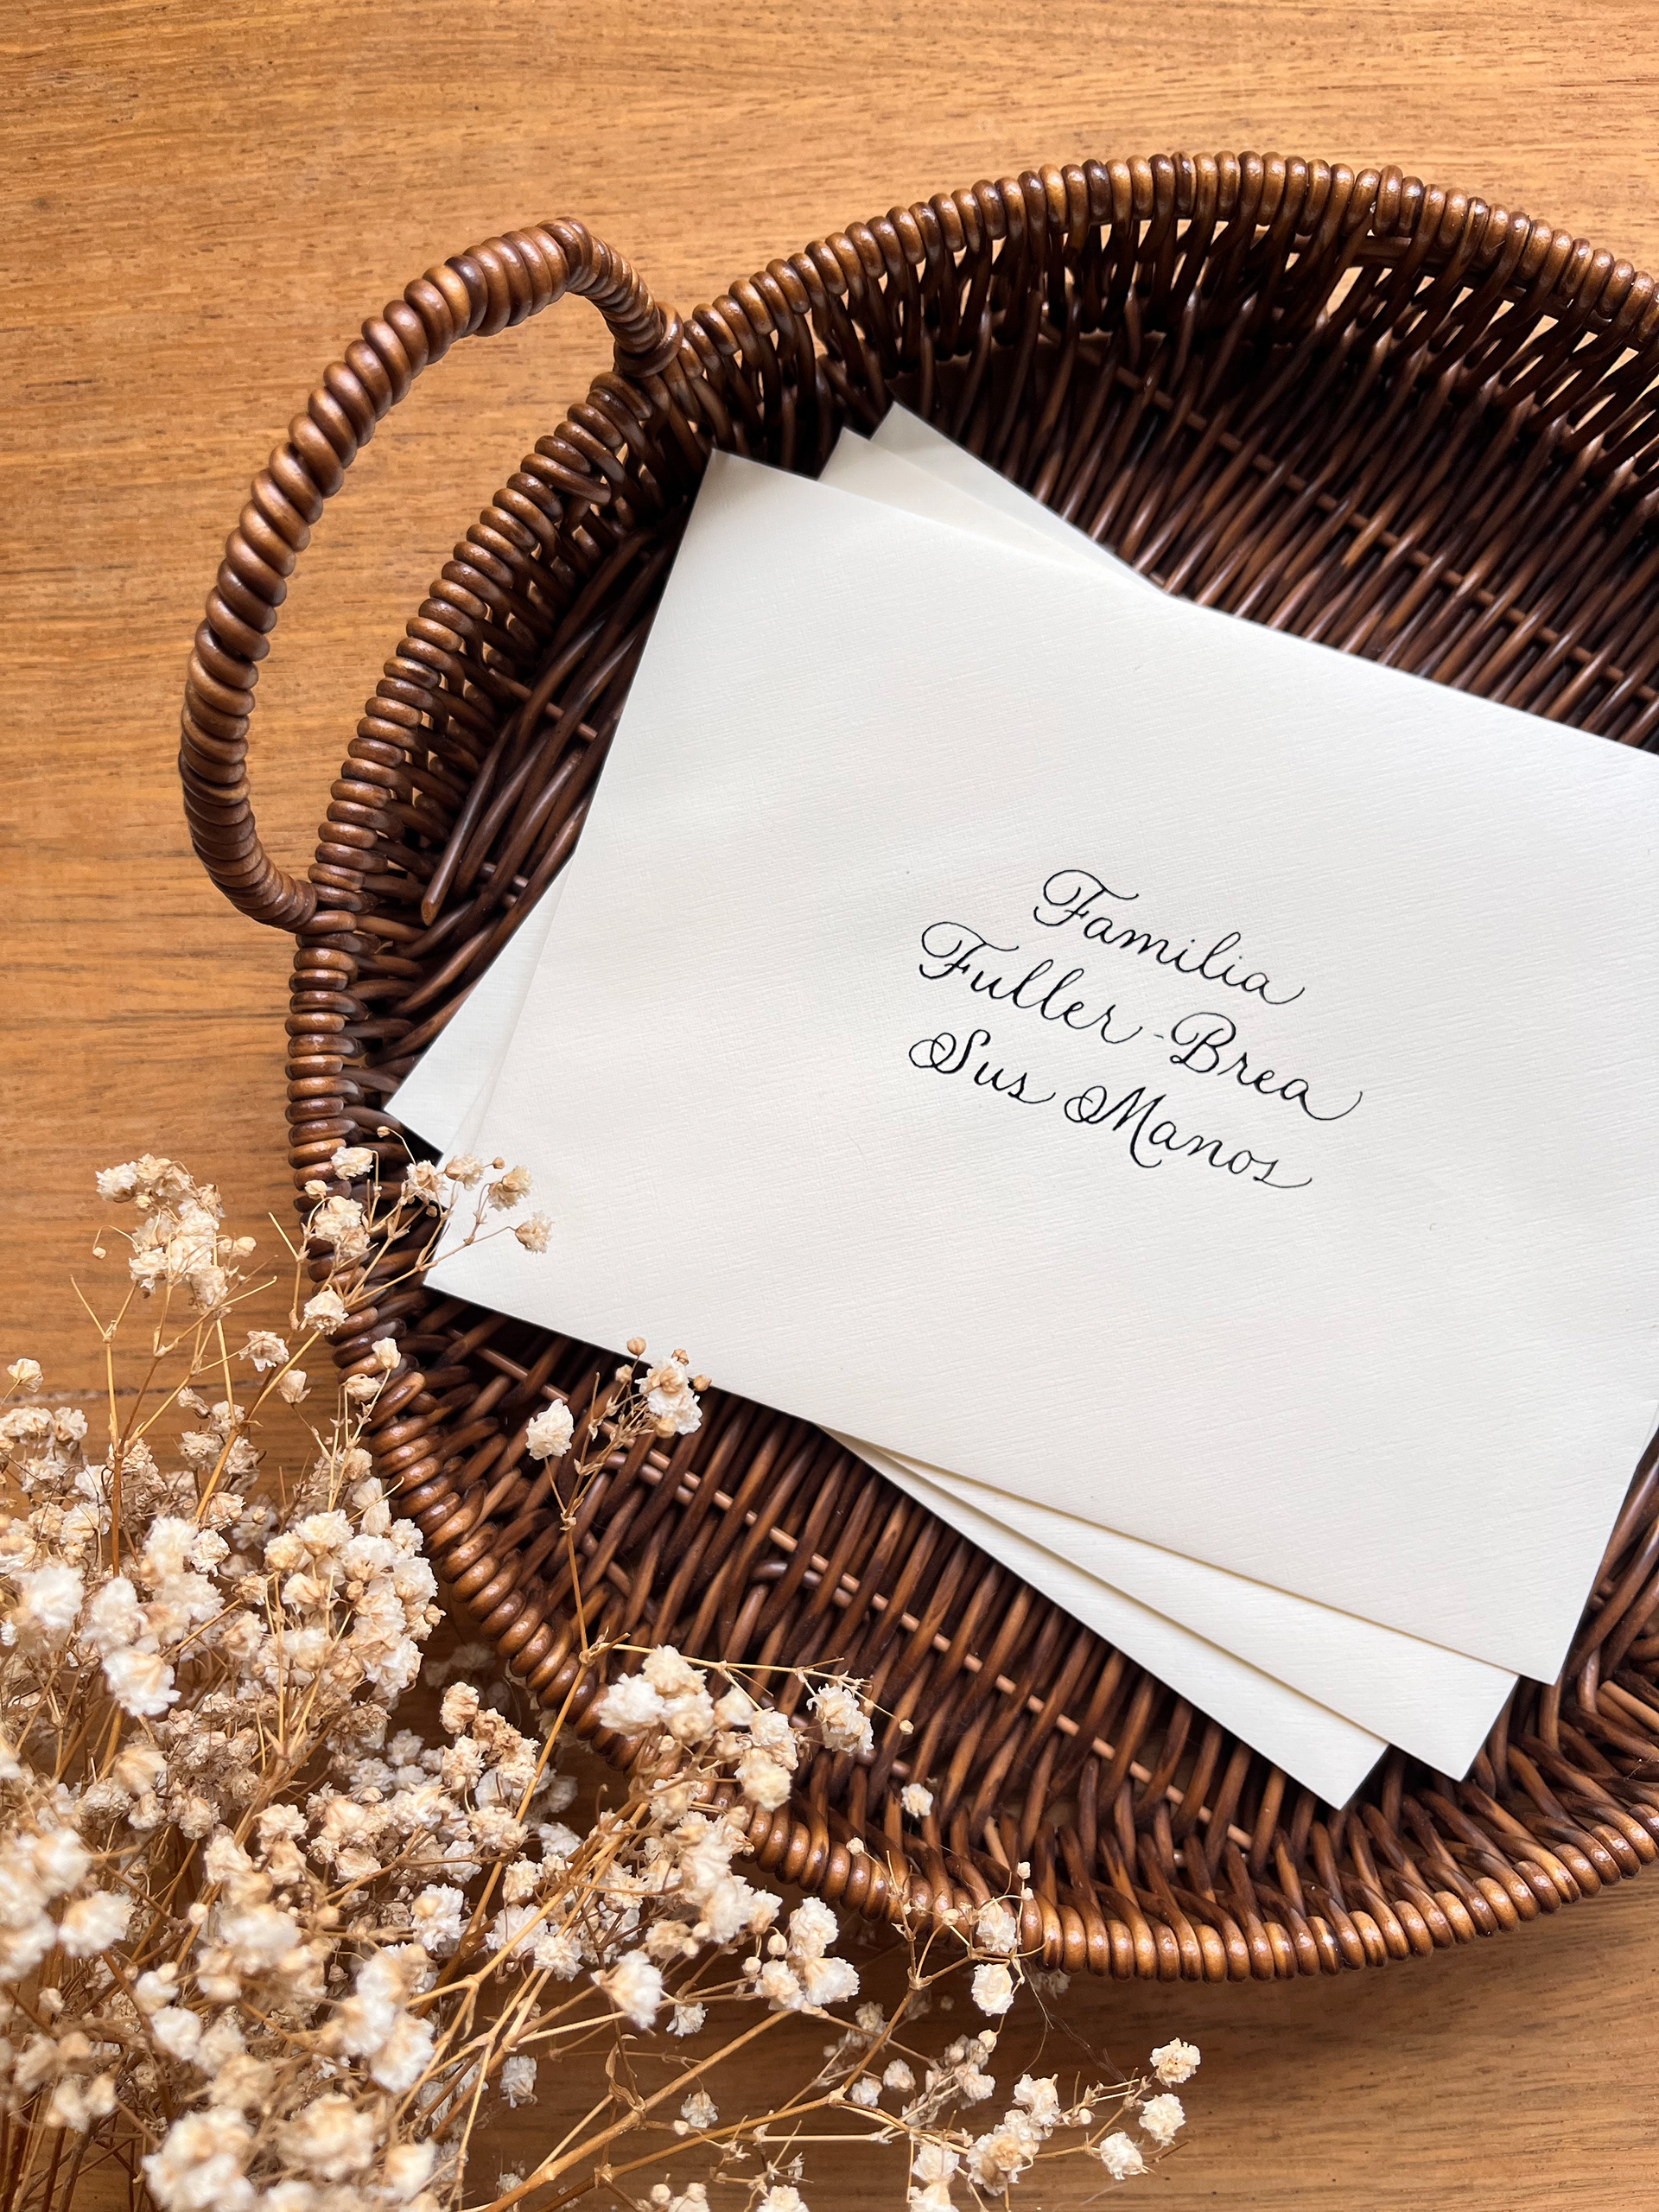 Familia
Fuller-Brea
Sus Manos